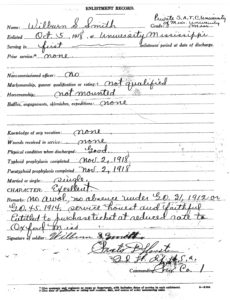 ENLISTMENT RECORD.
Name: Wilburn S. Smith Grade: Private S.A.T.C. University
of Miss. University
Miss
Enlisted Oct. 5, 1918, at University Mississippi
Serving in first enlistment period at date of discharge.
Prior service: none
Noncommissioned officer: no
Marksmanship, gunner qualification or rating: not qualified
Horsemanship: not mounted
Battles, engagements, skirmishes, expeditions: none
Knowledge of any vocation: none
Wounds received in service: none
Physical condition when discharged: Good
Typhoid prophylaxis completed Nov. 2, 1918
Paratyphoid prophylaxis completed Nov. 2, 1918
Married or single: single
CHARACTER: Excellent
Remarks: no awol, no absence under G.O. 31, 1912 or
G.O. 45, 1914. service honest and faithful
Entitled to purchase ticket at reduced rate to
Oxford Miss
Signature of soldier: S. Smith
U.S.A.
Commanding Co. 1